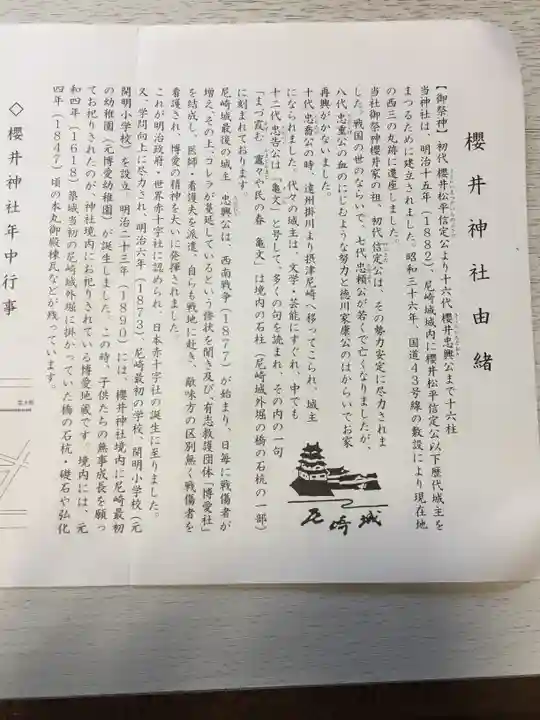 櫻井神社由緒
【御祭神】初代 櫻井松平信定公より十六代櫻井忠興公まで十六柱
当神社は、明治十五年（1882）、尼崎城城内に櫻井松平信定公以下歴代城主を
まつるために建立されました。昭和三十六年、国道43号線の敷設により現在地
の西三の丸跡に遷座しました。
当社御祭神櫻井家の祖、初代信定公は、その勢力安定に尽力されま
した。戦国の世のならいで、七代忠頼公が若くで亡くなりましたが、
八代忠重公の血のにじむような努力と徳川家康公のはからいでお家
再興がかないました。
十代忠喬公の時、遠州掛川より摂津尼崎へ移ってこられ、城主
になられました。代々の城主は、文学・芸能にすぐれ、中でも
十二代忠告公は「亀文」と号して、多くの句を読まれ、その内の一句
「まづ霞む 竈々や民の春 亀文」は境内の石柱（尼崎城外堀の橋の石杭の一部）
に刻まれております。
尼崎城最後の城主 忠興公は、西南戦争（1877）が始まり、日毎に戦傷者が
増え、その上、コレラが蔓延しているという惨状を聞き及び、有志救護団体「博愛社」
を結成し、医師・看護夫を派遣、自らも戦地に赴き、敵味方の区別無く戦傷者を
看護され、博愛の精神を大いに発揮されました。
これが明治政府・世界赤十字社に認められ、日本赤十字社の誕生に至りました。
又、学問向上に尽力され、明治六年（1873）、尼崎最初の学校、開明小学校（元
開明小学校）を設立。明治二十三年（1890）には、櫻井神社境内に尼崎最初
の幼稚園（元博愛幼稚園）が誕生しました。この時、子供たちの無事成長を願っ
てお祀りされたのが、神社境内にお祀りされている博愛地蔵です。境内には、元
和四年（1618）築城当初の尼崎城外堀に掛かっていた橋の石杭・礎石や弘化
四年（1847）頃の本丸御殿棟瓦などが残っています。
尼崎城
◇ 櫻井神社年中行事